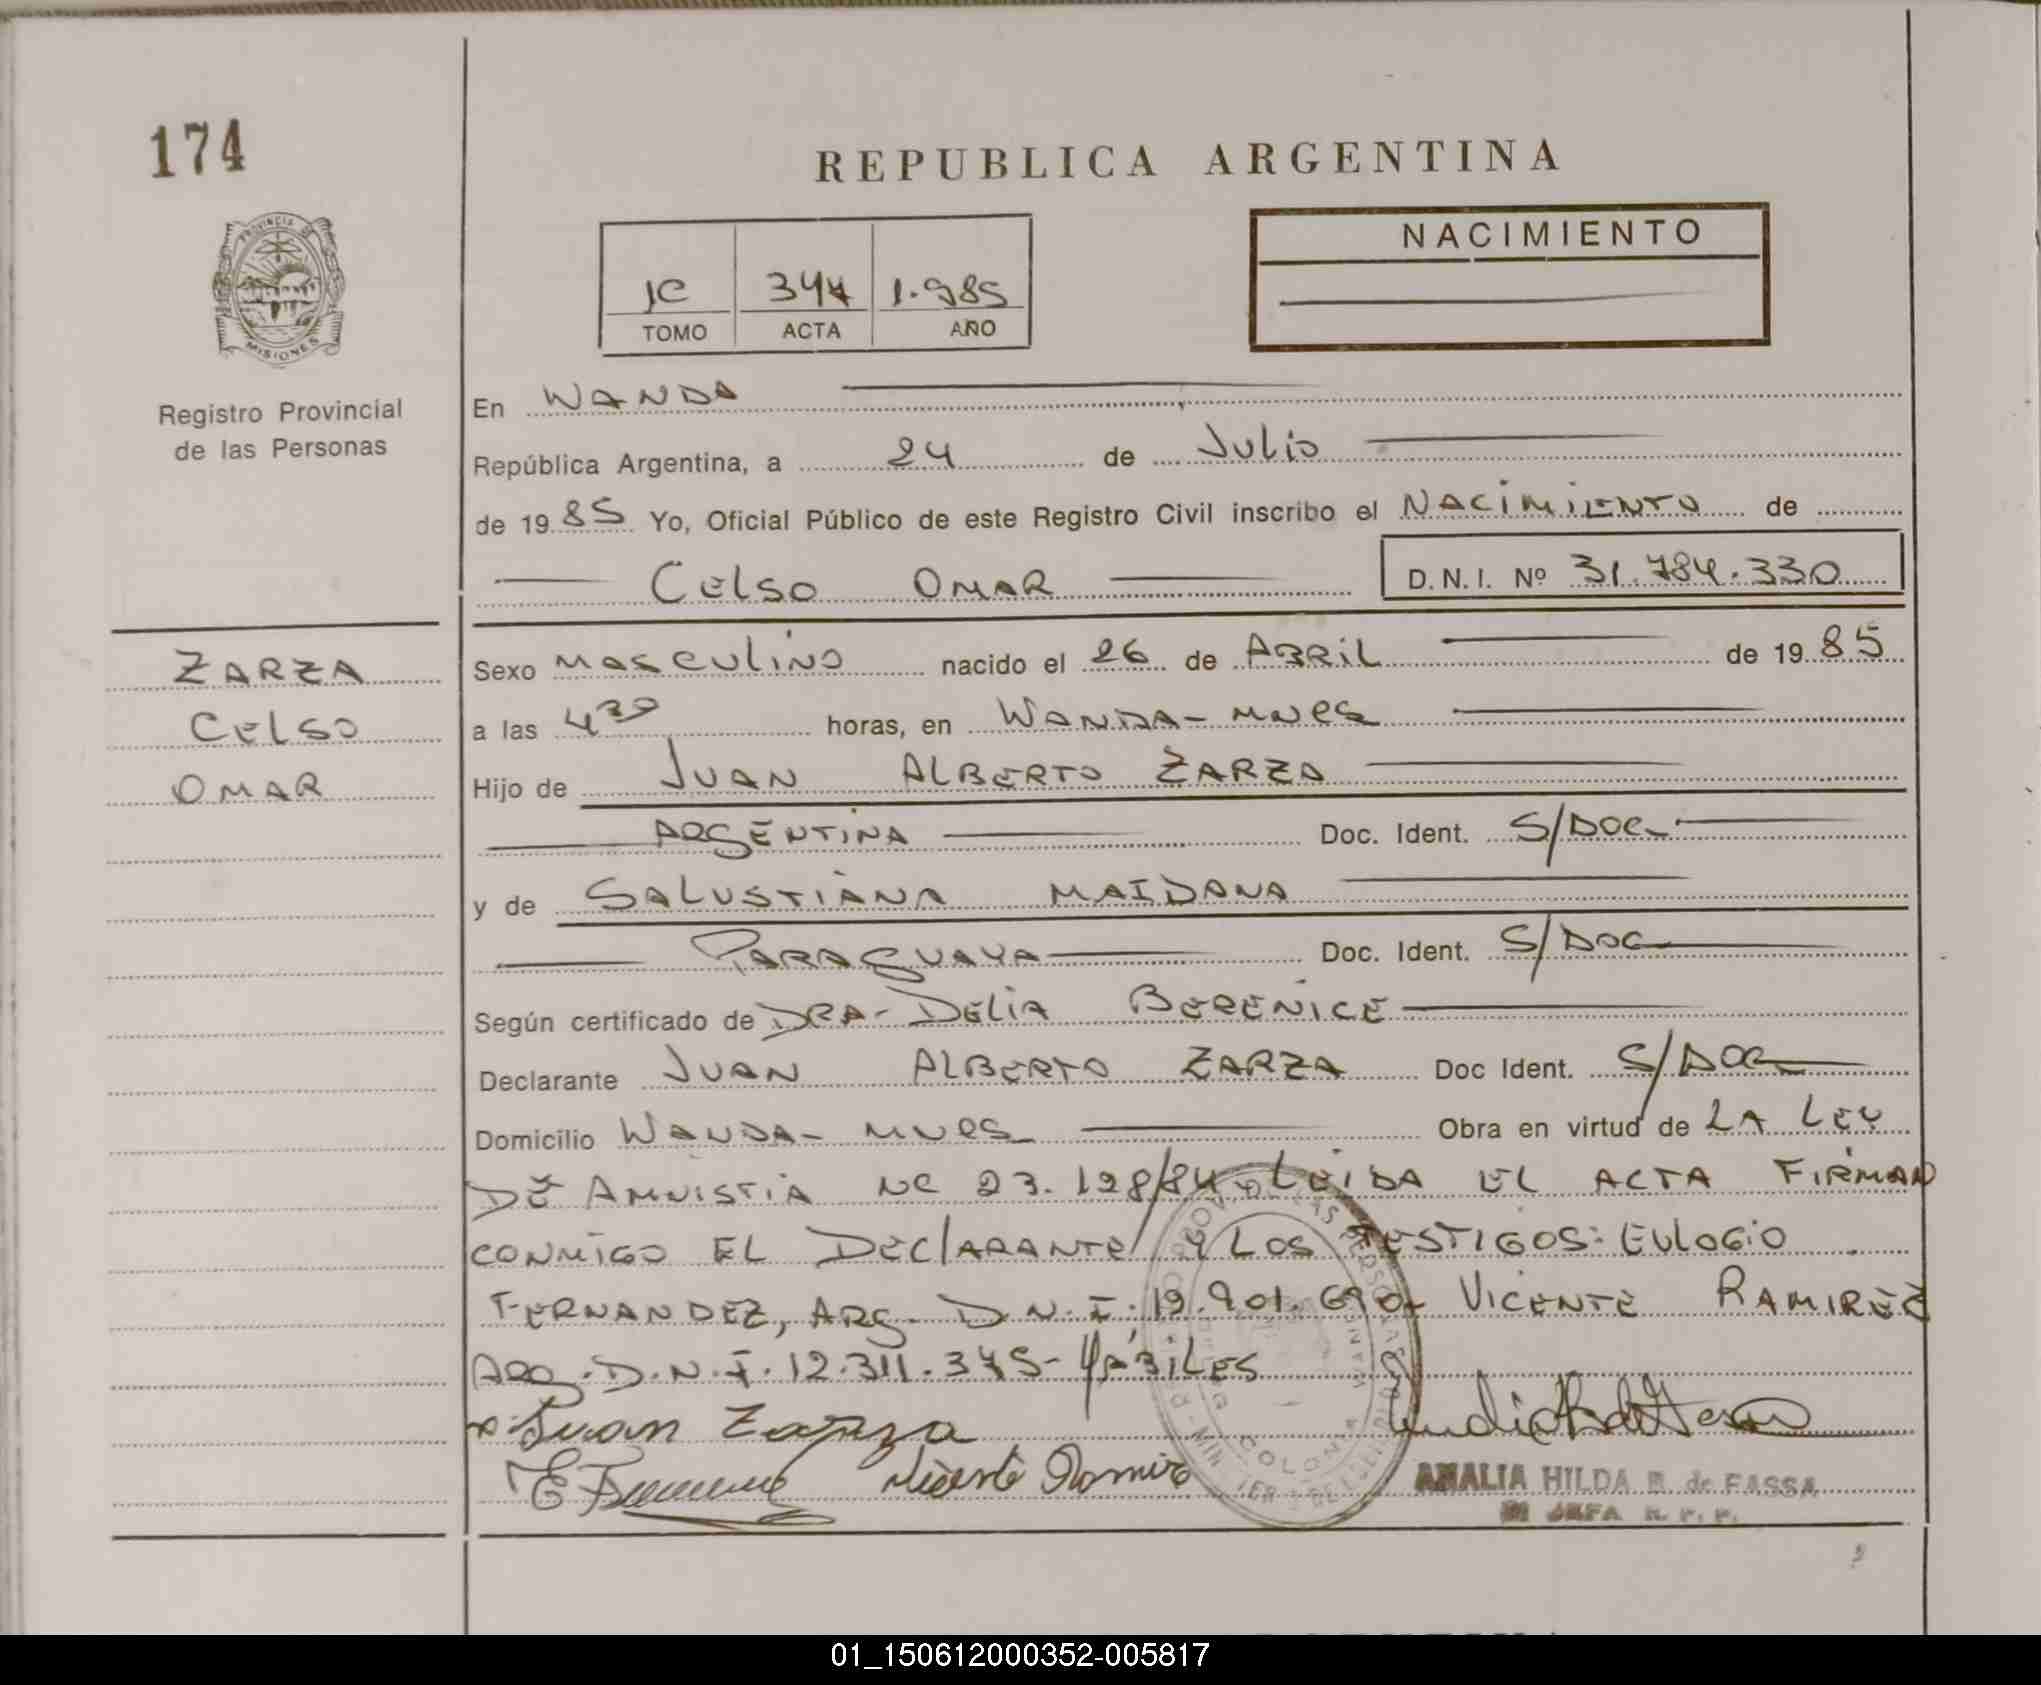 174
REPUBLICA ARGENTINA
PROVINCIA DE
MISIONES
Registro Provincial
de las Personas
1c 344 1.985
TOMO ACTA AÑO
NACIMIENTO
En WANDA
República Argentina, a 24 de Julio
de 1985 Yo, Oficial Público de este Registro Civil inscribo el NACIMIENTO de
CELSO OMAR D.N.I. Nº 31.784.330
ZARZA
CELSO
OMAR
Sexo MASCULINO nacido el 26 de ABRIL de 1985
a las 4 30 horas, en WANDA-MNES
Hijo de JUAN ALBERTO ZARZA
ARGENTINA Doc. Ident. S/DOC
y de SALUSTIANA MAIDANA
PARAGUAYA Doc. Ident. S/DOC
Según certificado de DRA-DELIA BERENICE
Declarante JUAN ALBERTO ZARZA Doc Ident. S/DOC
Domicilio WANDA-MNES Obra en virtud de LA LEY
DE AMNISTIA Nº 23.128/84 LEIDA EL ACTA FIRMAN
CONMIGO EL DECLARANTE Y LOS TESTIGOS: EULOGIO
FERNANDEZ, ARG. D.N.I. 19.901.690- VICENTE RAMIREZ
ARG. D.N.I. 12.311.345- HÁBILES
Juan Zarza
Vicente Ramirez
AMALIA HILDA B. de FASSA
JEFA R. P. P.
01_150612000352-005817